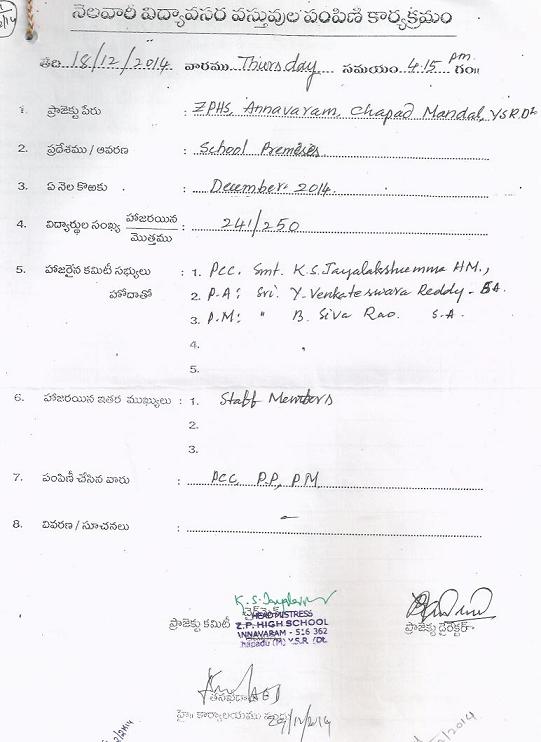 నెలవారీ విద్యావసర వస్తువుల పంపిణి కార్యక్రమం
తేది 18/12/2014 వారము Thursday సమయం 4.15 pm గం॥
1. ప్రాజెక్టు పేరు : ZPHS, Annavaram, Chapad Mandal, YSR Dt
2. ప్రదేశము / ఆవరణ : School Premises
3. ఏ నెల కొఱకు : December 2014.
4. విద్యార్థుల సంఖ్య హాజరయిన / మొత్తము : 241/250
5. హాజరైన కమిటీ సభ్యులు : 1. PCC. Smt. K.S. Jayalakshumma HM.,
హోదాతో 2. P.A: Sri. Y. Venkateswara Reddy - SA.
3. P.M: " B. Siva Rao. S.A.
4.
5.
6. హాజరయిన ఇతర ముఖ్యులు : 1. Staff Members
2.
3.
7. పంపిణీ చేసిన వారు : PCC, P.P, P.M
8. వివరణ / సూచనలు : –
ప్రాజెక్టు కమిటీ
HEAD MISTRESS
Z.P. HIGH SCHOOL
ANNAVARAM - 516 362
hapadu (M) Y.S.R. (Dt.
ప్రాజెక్టు డైరెక్టర్
హై॥ కార్యాలయము
/12/2014